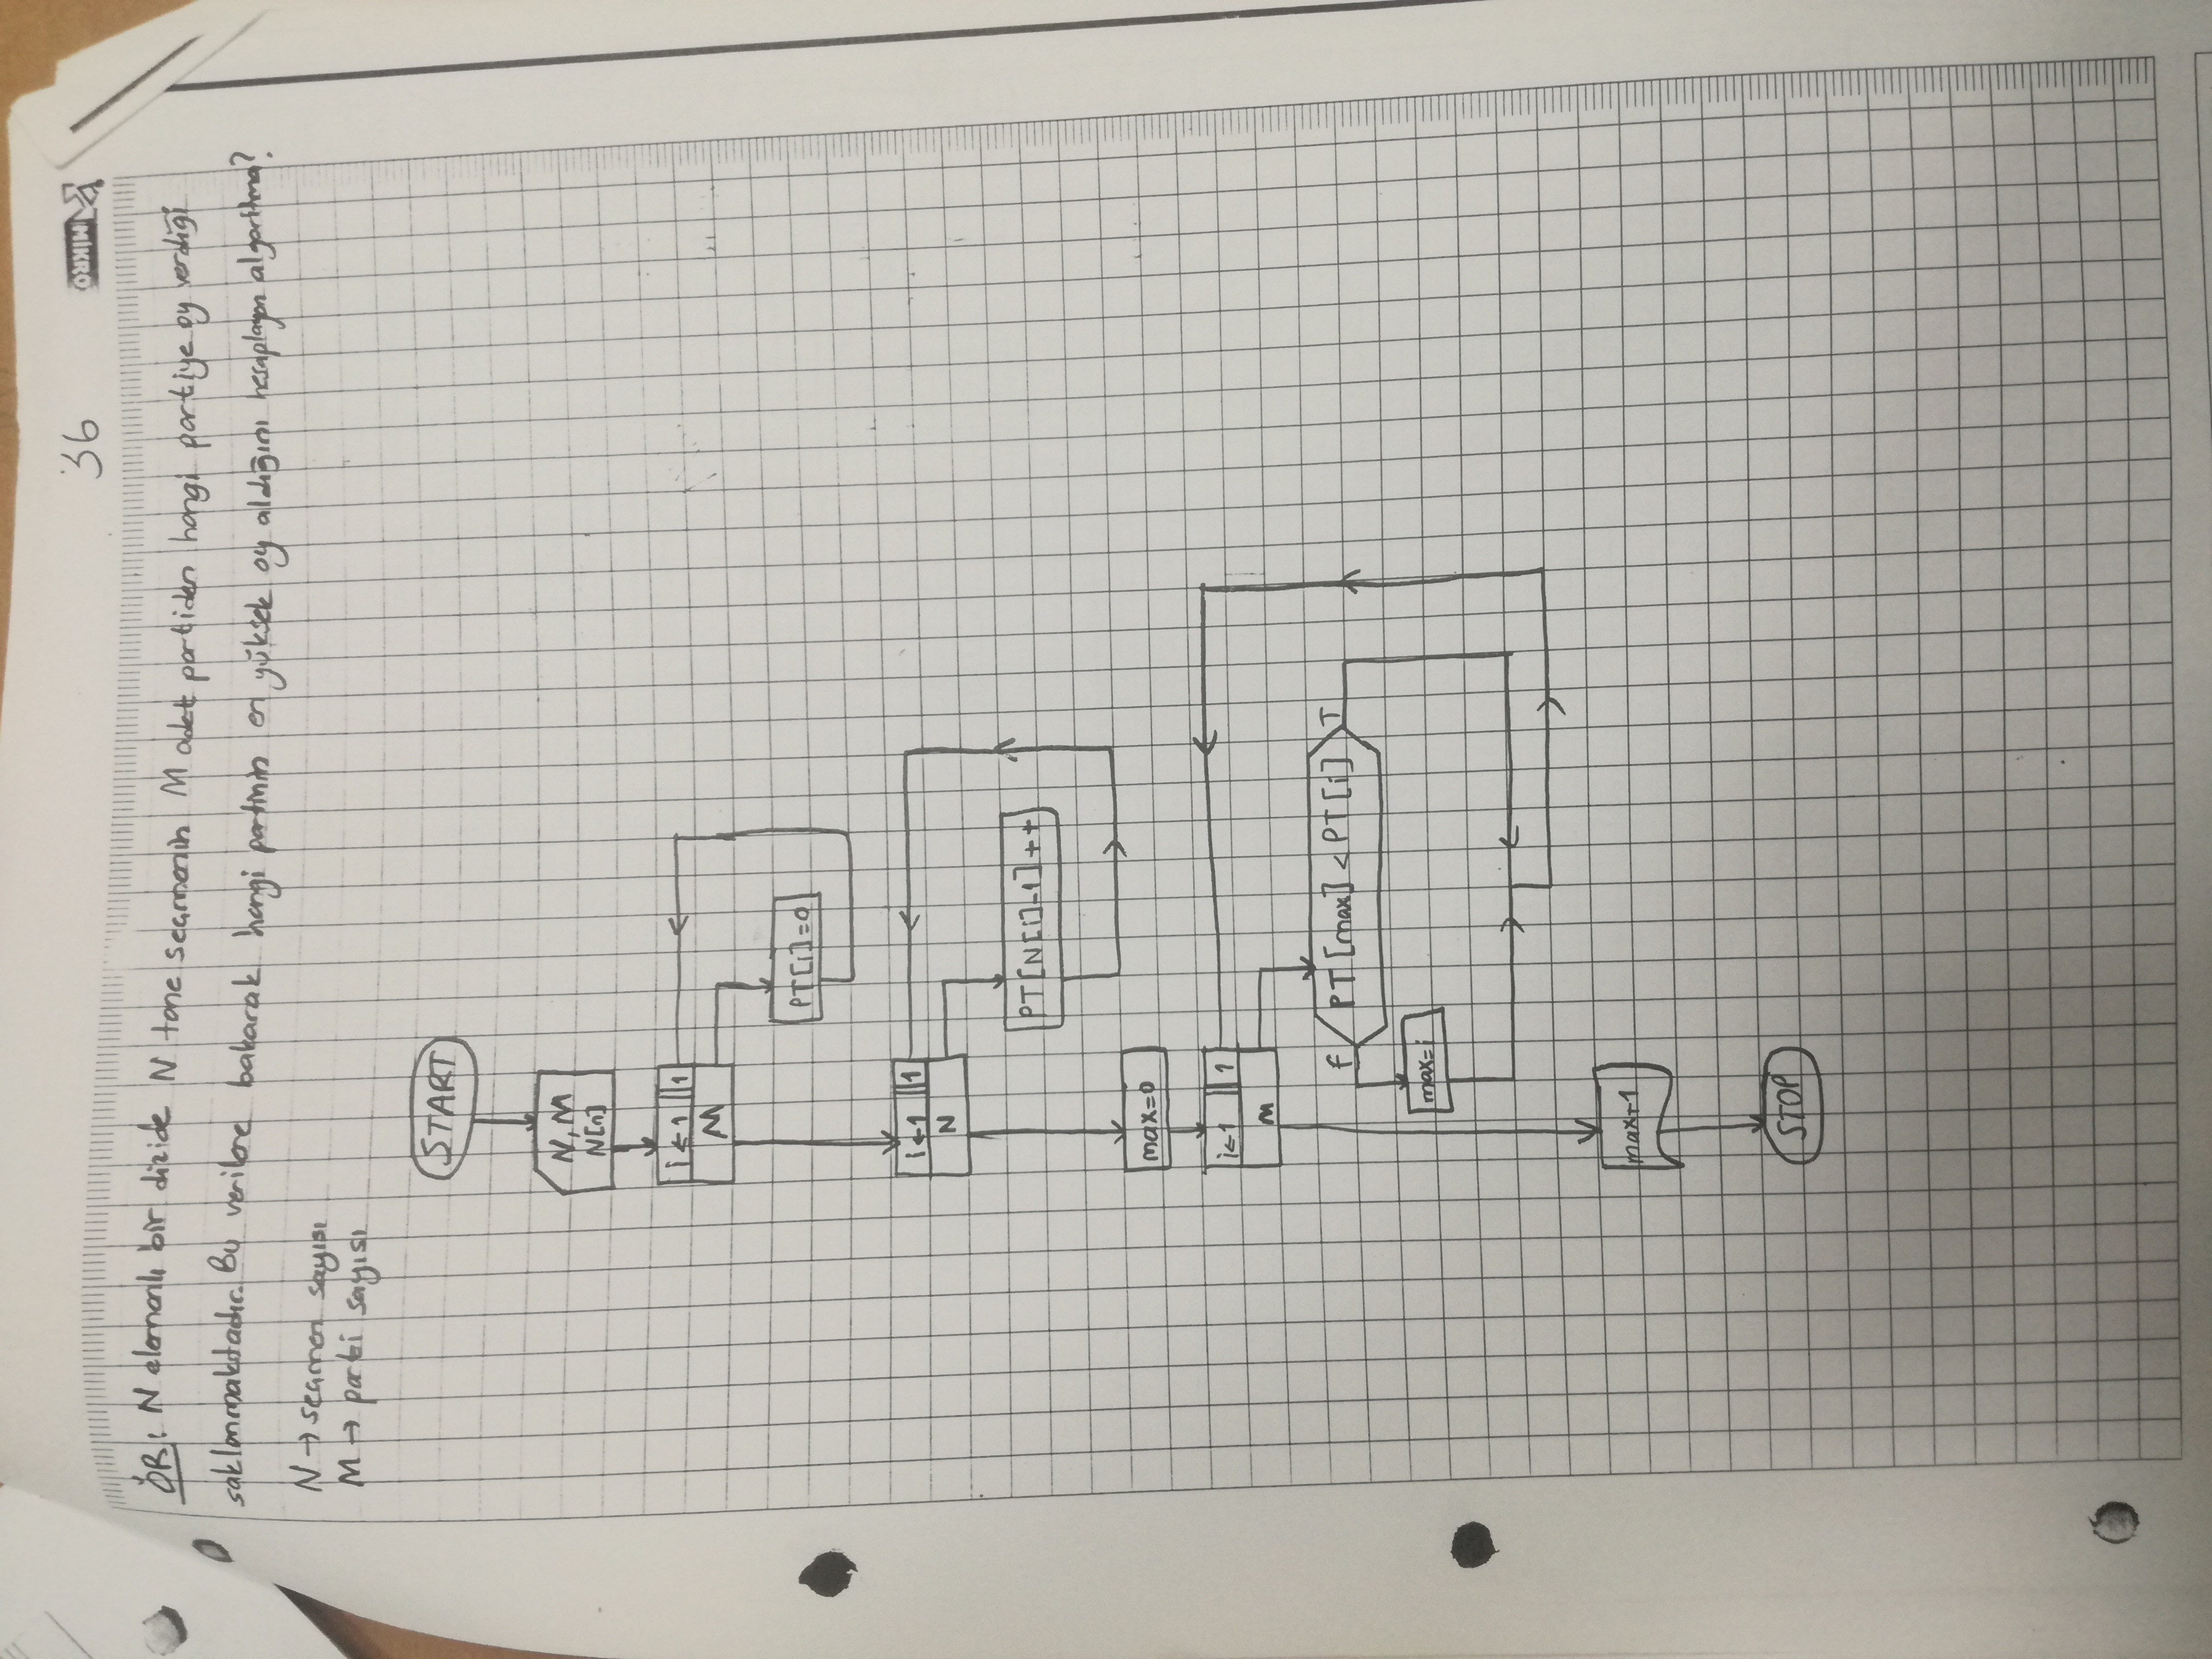 36
MIKRO
ÖR: N elemanlı bir dizide N tane seçmenin M adet partiden hangi partiye oy verdiği
saklanmaktadır. Bu verilere bakarak hangi partinin en yüksek oy aldığını hesaplayan algoritma?
N → seçmen sayısı
M → parti sayısı
START
N, M
N[n]
i ← 1 1
M
PT[i]=0
i ← 1 1
N
PT[N[i]-1]++
max=0
i ← 1 1
M
F PT[max] < PT[i] T
max=i
max+1
STOP